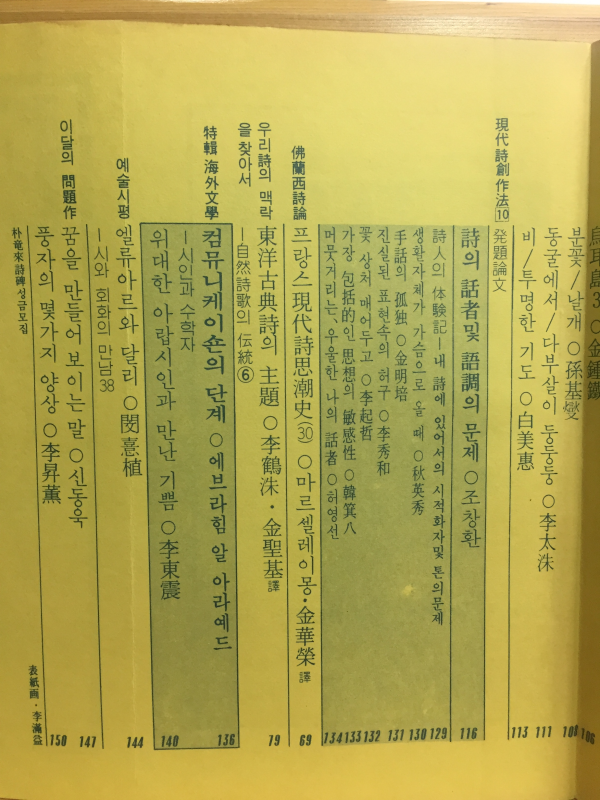 烏耳島 3 ○ 金鍾鐵 106
분꽃/날개 ○ 孫基燮 108
동굴에서/다부살이 둥둥둥 ○ 李太洙 111
비/투명한 기도 ○ 白美惠 113
現代詩創作法 10
発題論文
詩의 話者및 語調의 문제 ○ 조창환 116
詩人의 体験記─내 詩에 있어서의 시적화자및 톤의문제
생활자체가 가슴으로 올 때 ○ 秋英秀 129
手話의 孤独 ○ 金明培 130
진실된 표현속의 허구 ○ 李秀和 131
꽃 상처 매어두고 ○ 李起哲 132
가장 包括的인 思想의 敏感性 ○ 韓箕八 133
머뭇거리는, 우울한 나의 話者 ○ 허영선 134
佛蘭西詩論
프랑스 現代詩思潮史 (30) ○ 마르셀레이몽·金華榮 譯 69
우리詩의 맥락
을 찾아서
東洋古典詩의 主題 ○ 李鶴洙·金聖基 譯 79
─自然詩歌의 伝統 ⑥
特輯 海外文學
컴뮤니케이숀의 단계 ○ 에브라힘 알 아라예드 136
─시인과 수학자
위대한 아랍시인과 만난 기쁨 ○ 李東震 140
예술시평
엘류아르와 달리 ○ 閔憙植 144
─시와 회화의 만남 38
이달의 問題作
꿈을 만들어 보이는 말 ○ 신동욱 147
풍자의 몇가지 양상 ○ 李昇薰 150
朴竜來詩碑 성금모집
表紙画·李滿益